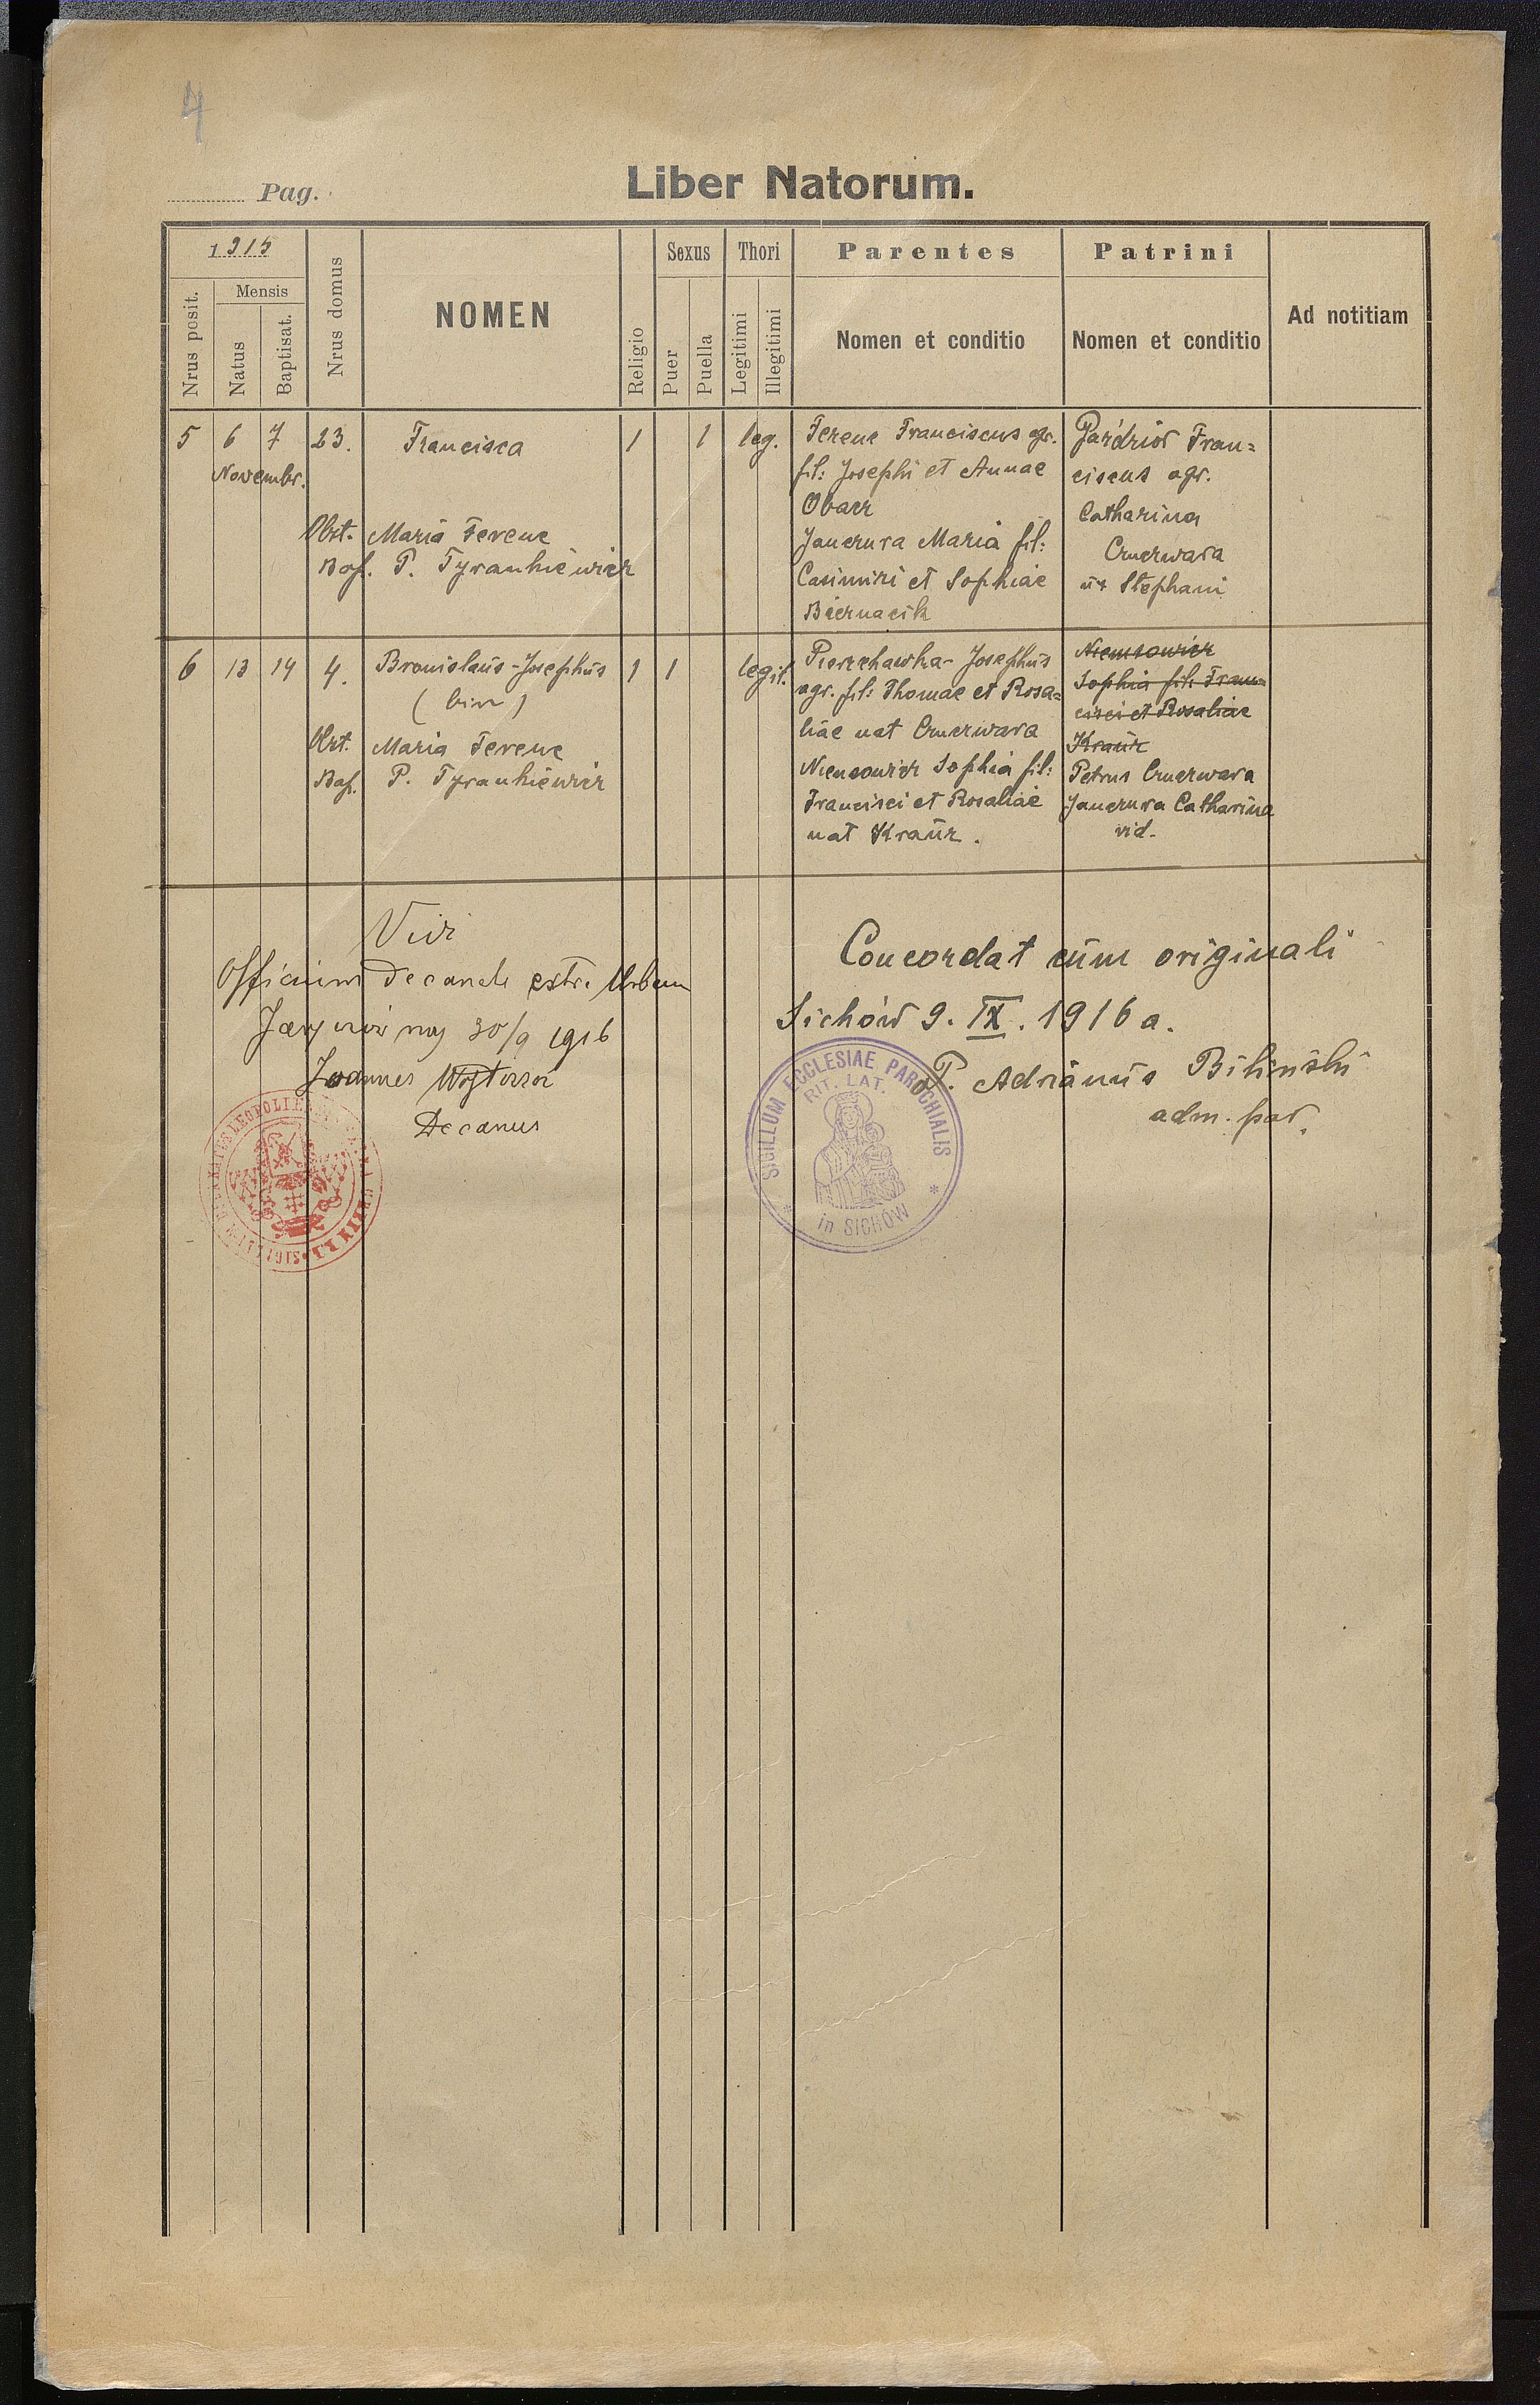 4
Pag.
Liber Natorum.
1915
Nrus posit.
Mensis
Natus
Baptisat.
Nrus domus
NOMEN
Religio
Sexus
Puer
Puella
Thori
Legitimi
Illegitimi
Parentes
Nomen et conditio
Patrini
Nomen et conditio
Ad notitiam
5 6 7 23. Francisca 1 1 leg.
Novembr.
Obst. Maria Ferenc
Bap. P. Tyrankiewicz
Ferenc Franciscus agr.
fil: Josephi et Annae
Obacz
Janczura Maria fil:
Casimiri et Sophiae
Biernacik
Paździor Fran=
ciscus agr.
Catharina
Czuczwara
ux Stephani
6 13 14 4. Bronislaus-Josephus 1 1 legit.
(bin)
Obst. Maria Ferenc
Bap. P. Tyrankiewicz
Pierzchawka Josephus
agr. fil: Thomae et Rosa=
liae nat Czuczwara
Niemcowicz Sophia fil:
Francisci et Rosaliae
nat Krauz.
Niemcowicz
Sophia fil: Fran=
cisci et Rosaliae
Krauz
Petrus Czuczwara
Janczura Catharina
vid.
Vidi
Officium Decanale extr. Urbem
30/9 1916
Joannes
Decanus
Concordat cum originali
Sichów 9. IX. 1916 a.
P. Adrianus Biliński
adm. par.
SIGILLUM ECCLESIAE PAROCHIALIS
RIT. LAT.
in SICHÓW